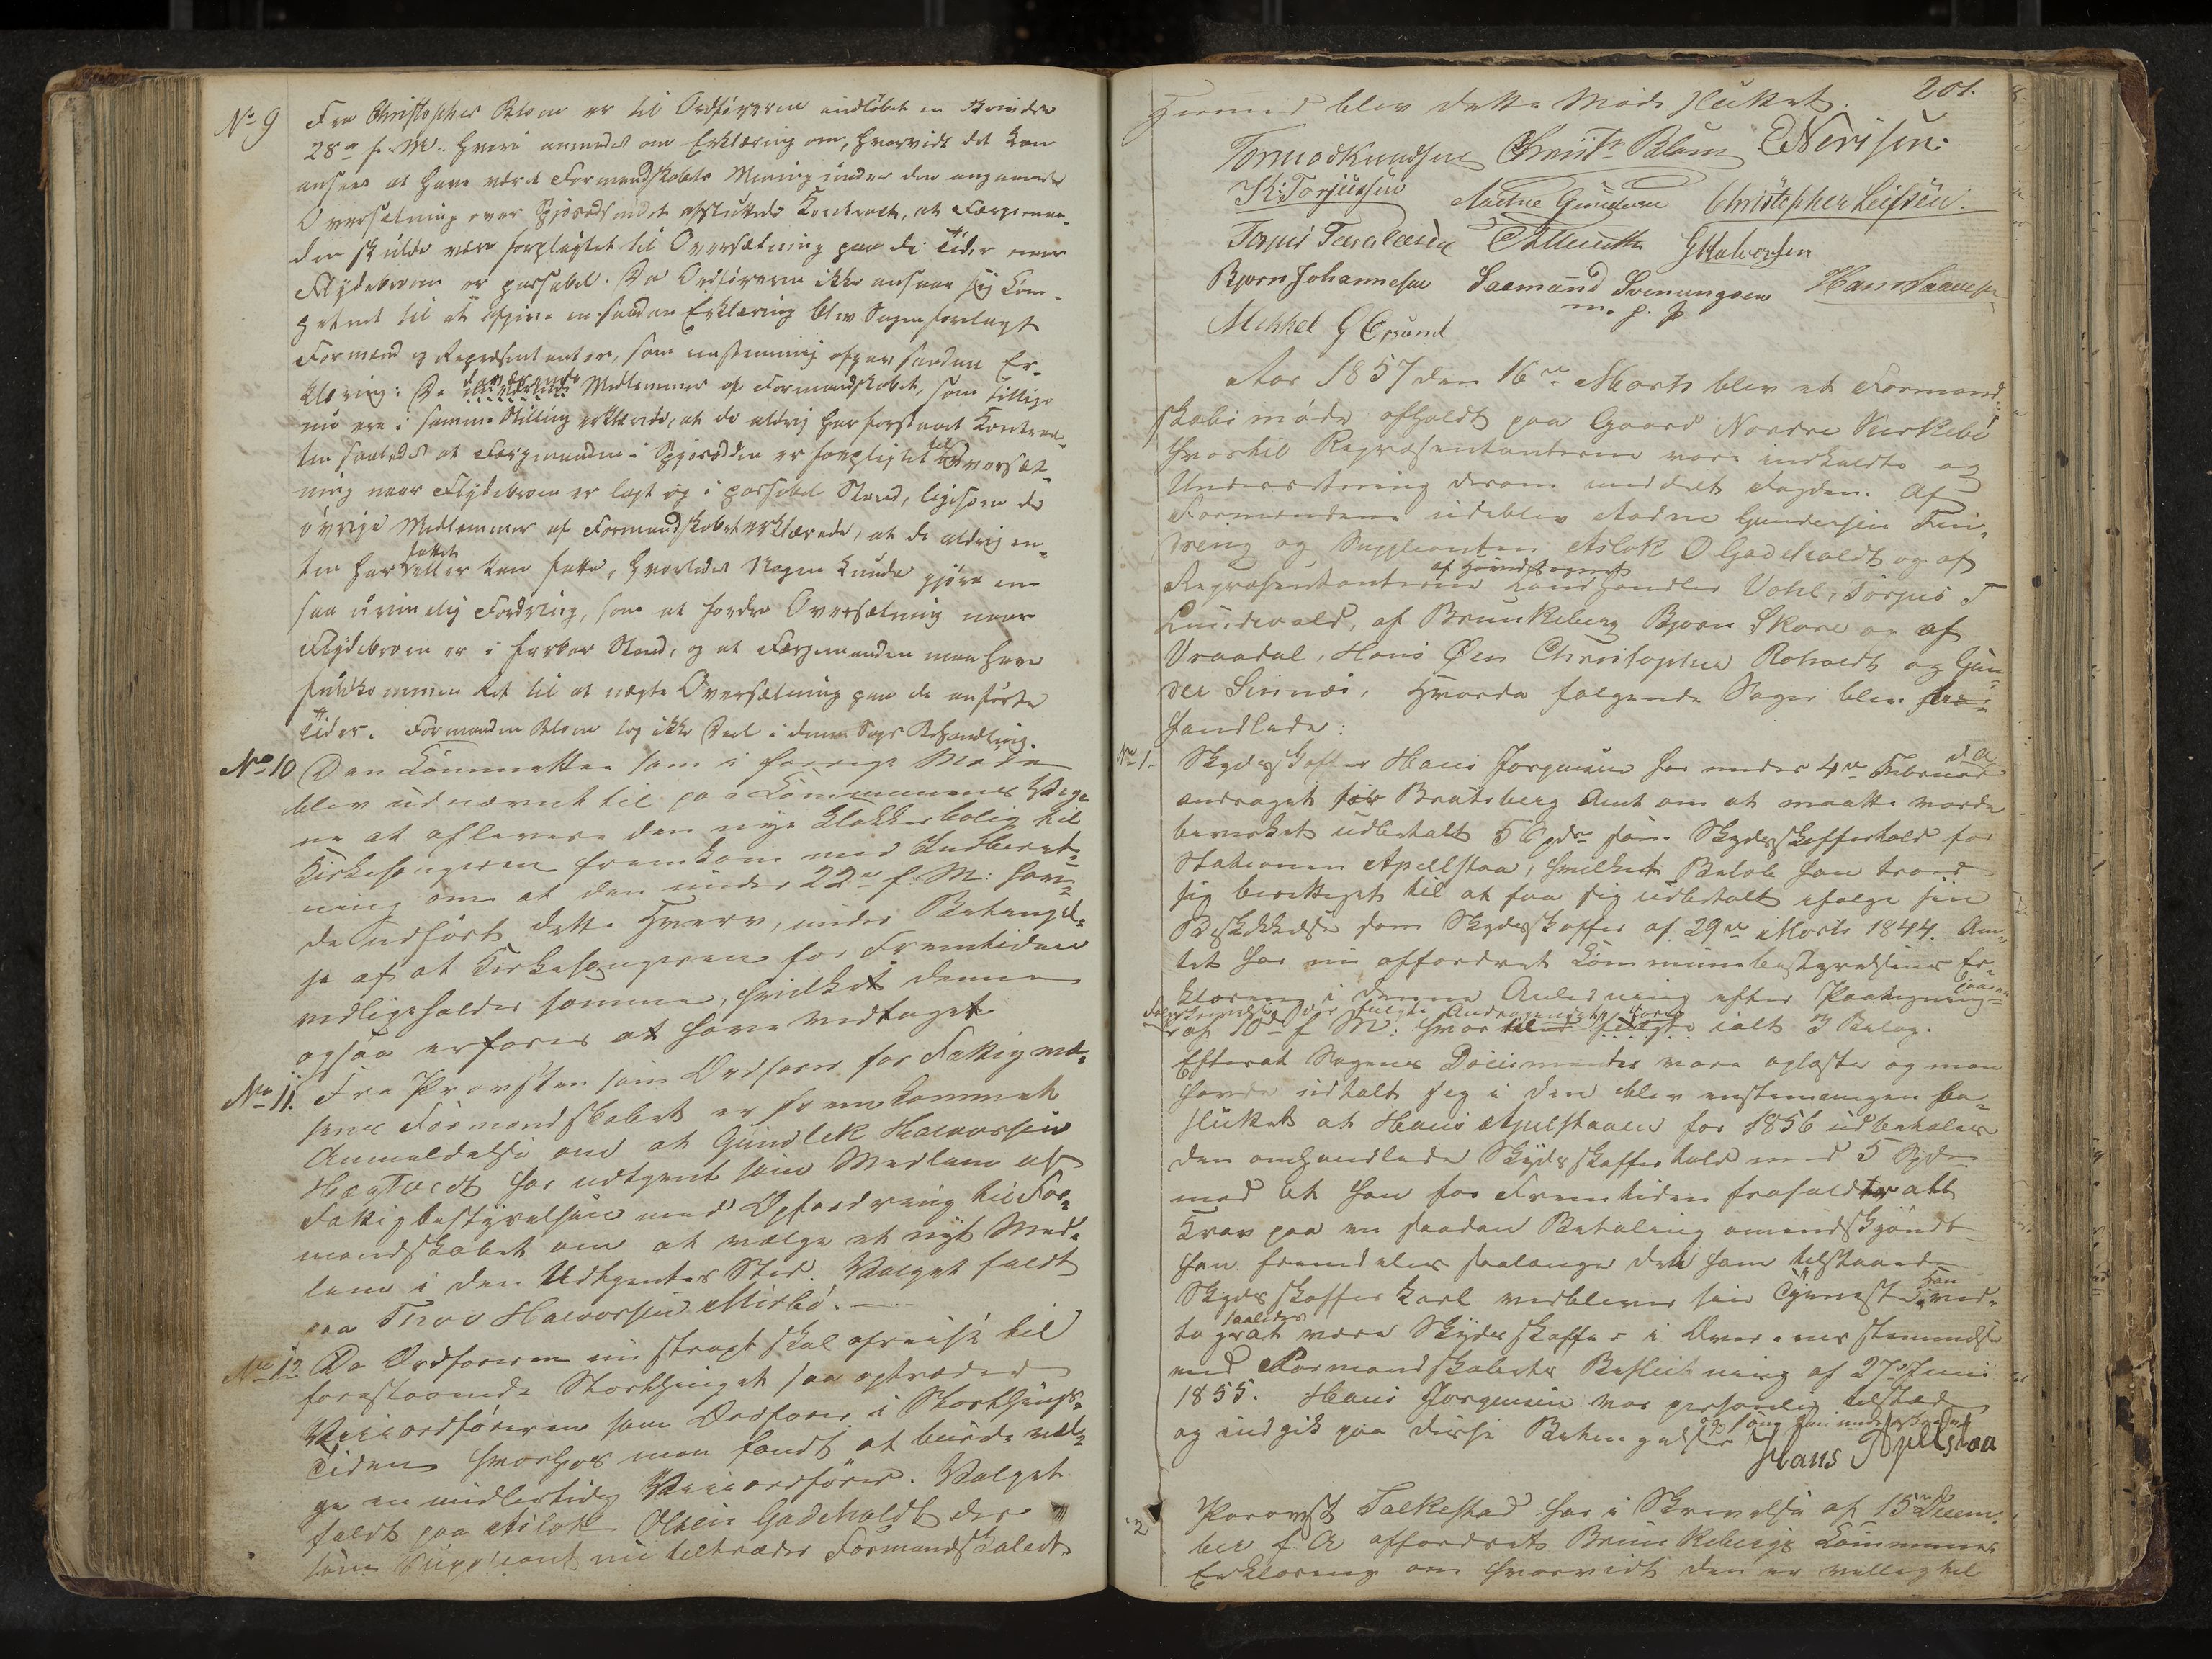 No 9 Fra Christopher Blom er til Ordføreren indløbet en
28de f. M. hvori anmodes om Erklæring om, hvorvidt det kan
ansees at have været Formandskabets Mening under den angaaende
Oversætning over afsluttede Contract, at Færgeman-
den skulde være forpligtet til Oversætning paa de Tider naar
Flydebroen er passabel. Da Ordføreren ikke ansaae sig com-
petent til at afgive en saadan Erklæring blev Sagen forelagt
Formænd og Repræsentanter, som eenstemmig afgav saadan Er-
klæring: De daværende Medlemmer af Formandskabet, som tillige
nu ere i samme Stilling erklærede, at de aldrig har forstaaet Contrac-
ten saaledes at Færgemanden i er forpligtet til Oversæt-
ning naar Flydebroen er lagt og i passabel Stand, ligesom de
øvrige Medlemmer af Formandskabet erklærede, at de aldrig en-
ten har fattet eller kan fatte, hvorledes Nogen kunde gjøre en
saa urimelig Fordring, som at fordre Oversætning naar
Flydebroen er i farbar Stand, og at Færgemanden maa have
fuldkommen Ret til at nægte Oversætning paa de anførte
Tider. Formanden Blom tog ikke Deel i denne Sags Behandling.
No 10 Den Committee som i forrige Møde
blev udnævnt til paa Communens Veg-
ne at aflevere den nye Klokkerbolig til
Kirkesangeren fremkom med Indberet-
ning om at den under 22de f. M: hav-
de udført dette Hverv, under Betingel-
se af at Kirkesangeren for Fremtiden
vedligeholder samme, hvilket denne
ogsaa erfares at have vedtaget.
No 11. Fra Provsten som Ordfører for Fattigvæ-
sens Formandskabet er fremkommet
Anmeldelse om at Gunlek Halvorsen
Hægtvedt har udtjent som Medlem af
Fattigbestyrelsen med Opfordring til For-
mandskabet om at vælge et nyt Med-
lem i den Udtjentes Sted. Valget faldt
paa Thov Halvorsen Mirbø. —
No 12 Da Ordføreren nu strax skal afreise til
forestaaende Storthinget saa optræder
Viceordføreren som Ordfører i Storthings-
tiden hvorhos man fandt at burde væl-
ge en midlertidig Viceordfører. Valget
faldt paa Aslak Olsen Gadeholdt der
som Suppleant nu tiltræder Formandskabet.
201.
Hermed blev dette Møde sluttet.
Tormod Knudsen Christr Blom E Nerisen
K: Torjusen Aadne Gundersen Christopher Leifsen.
GHalvorsen
Bjørn Johannesen Saamund Svenungsen Hans
m. p. P
Mikkel G Ersund
Aar 1857 den 16de Marts blev et Formand-
skabsmøde afholdt paa Gaard Nordre Kirkebø
hvortil Repræsentanterne vare indkaldte og
Underretning derom meddelt Fogden. Af
Formændene udeblev Aadne Gundersen
og Suppleanten Aslak O Gadeholdt og af
Repræsentanterne af Hovedsognet Landhandler Vahl, Torjus T
Lundevald, af Brunkeberg Bjørn Skare og af
Vraadal, Hans Øen Christopher Roholdt og Gun-
der Sinnæs. Hvorda følgende Sager blev for-
handlede:
No 1. Skydsskaffer Hans Jørgensen har under 4de Februar d. A
andraget for Bratsberg Amt om at maatte vorde
bevirket udbetalt 5 Spdr som Skydsskafferhold for
Stationen Apelstaa, hvilket Beløb han troer
sig berettiget til at faa sig udbetalt ifølge sin
Beskikkelse som Skydsskaffer af 29de Marts 1844. Am-
tet har nu affordret Communebestyrelsens Er-
klæring i denne Anledning efter Paategning
af 10de f M: hvor ialt 3 Bilag.
Efterat Sagens Documenter vare oplæste og man
havde udtalt sig i den blev eenstemmigen be-
sluttet at Hans Apelstaaen for 1856 udbetales
den omhandlede Skydsskafferhold med 5 Spdr
mod at han for Fremtiden frafalder alt
Krav paa en saadan Betaling omendskjøndt
han fremdeles saalænge den ham tilstaaede
Skydsskaffer Karl vedbliver sin Tjeneste, han ved-
tog saaledes at være Skydsskaffer i Overeensstemmelse
med Formandskabets Beslutning af 27de Juni
1855. Hans Jørgensen var personlig tilstæde
og indgik paa disse Betingelser
Hans Apelstaa
2 Provst Falkestad har i Skrivelse af 15de Decem-
ber f. A affordret Brunkebergs Communes
Erklæring om hvorvidt den er villig til